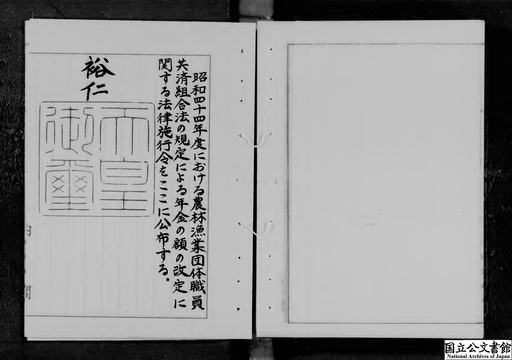 昭和四十四年度における農林漁業団体職員
共済組合法の規定による年金の額の改定に
関する法律施行令をここに公布する。
裕仁
天皇御璽
国立公文書館
National Archives of Japan